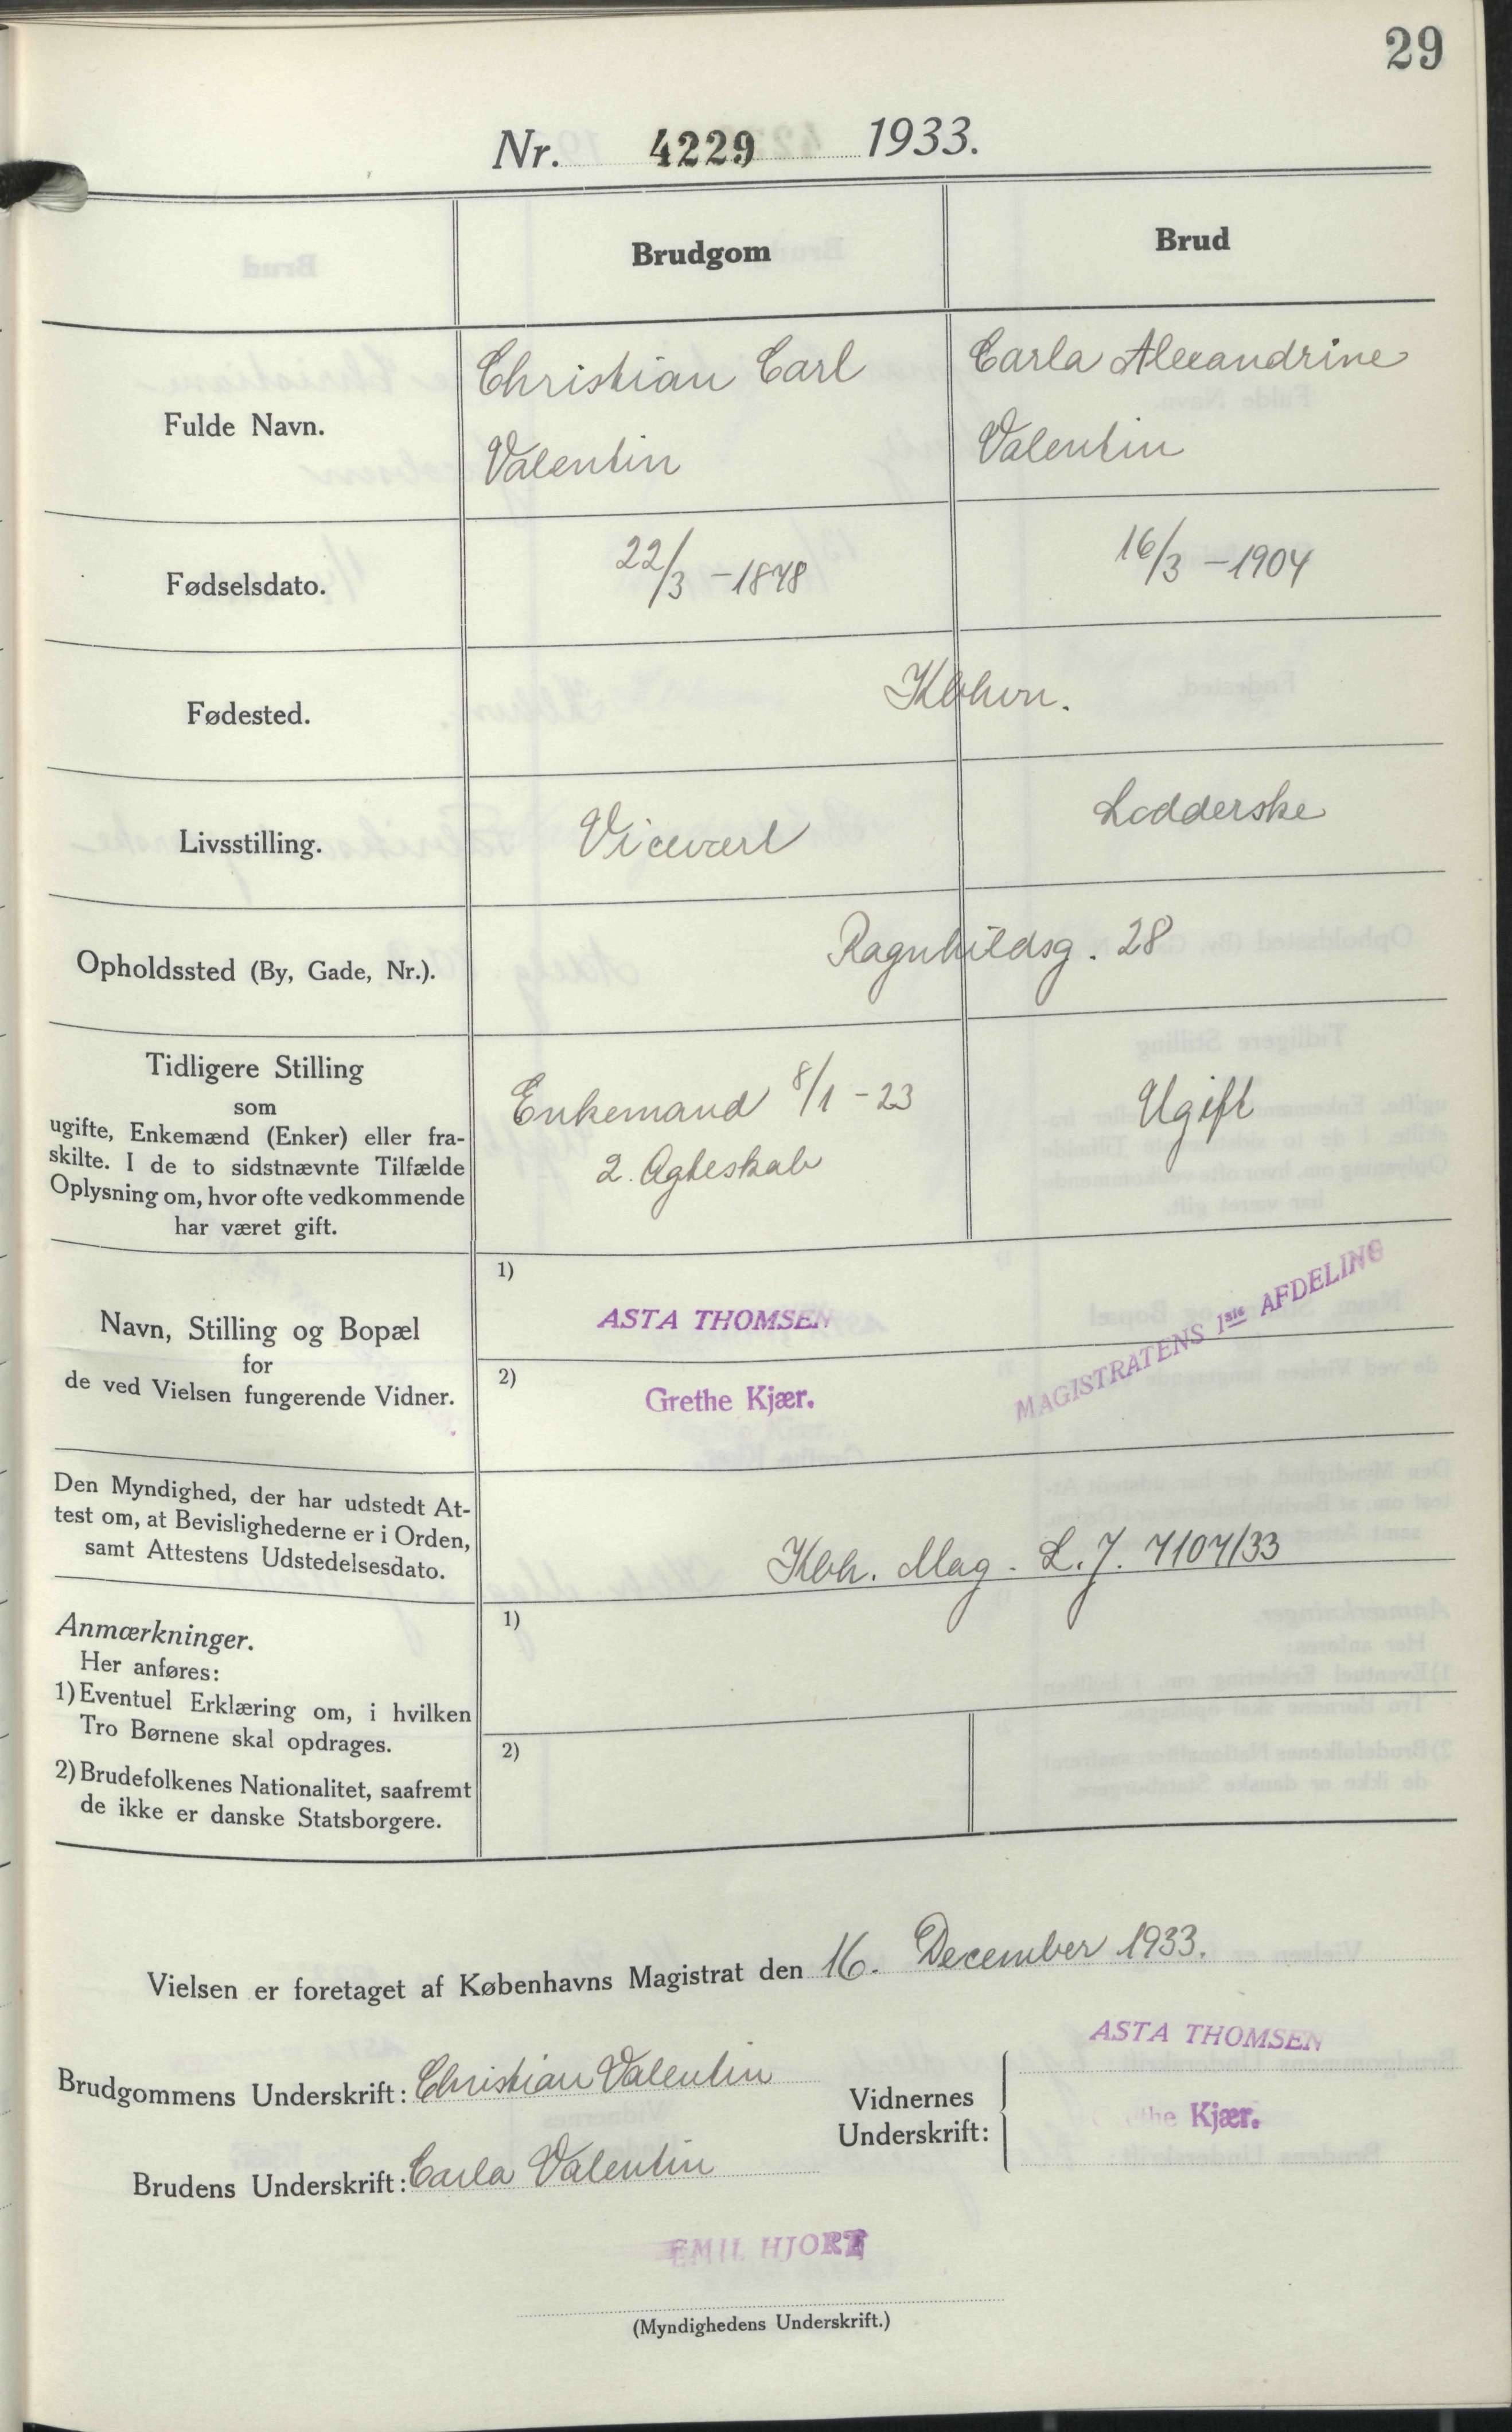 29
Nr. 4229 1933.
Brudgom
Brud
Fulde Navn.
Christian Carl
Valentin
Carla Alexandrine
Valentin
Fødselsdato.
22/3 - 1878
16/3 - 1904
Fødested.
Kbhvn.
Livsstilling.
Vicevært
Lodderske
Opholdssted (By, Gade, Nr.).
Ragnhildsg. 28
Tidligere Stilling
som
ugifte, Enkemænd (Enker) eller fra-
skilte. I de to sidstnævnte Tilfælde
Oplysning om, hvor ofte vedkommende
har været gift.
Enkemand 8/1 - 23
2. Ægteskab
Ugift
Navn, Stilling og Bopæl
for
de ved Vielsen fungerende Vidner.
1)
ASTA THOMSEN
2)
Grethe Kjær.
MAGISTRATENS 1ste AFDELING
Den Myndighed, der har udstedt At-
test om, at Bevislighederne er i Orden,
samt Attestens Udstedelsesdato.
Kbh. Mag. L.J. 7107/33
Anmærkninger.
Her anføres:
1) Eventuel Erklæring om, i hvilken
Tro Børnene skal opdrages.
2) Brudefolkenes Nationalitet, saafremt
de ikke er danske Statsborgere.
1)
2)
Vielsen er foretaget af Københavns Magistrat den 16. December 1933.
Brudgommens Underskrift: Christian Valentin
Brudens Underskrift: Carla Valentin
Vidnernes
Underskrift:
ASTA THOMSEN
Kjær.
EMIL HJORT
(Myndighedens Underskrift.)